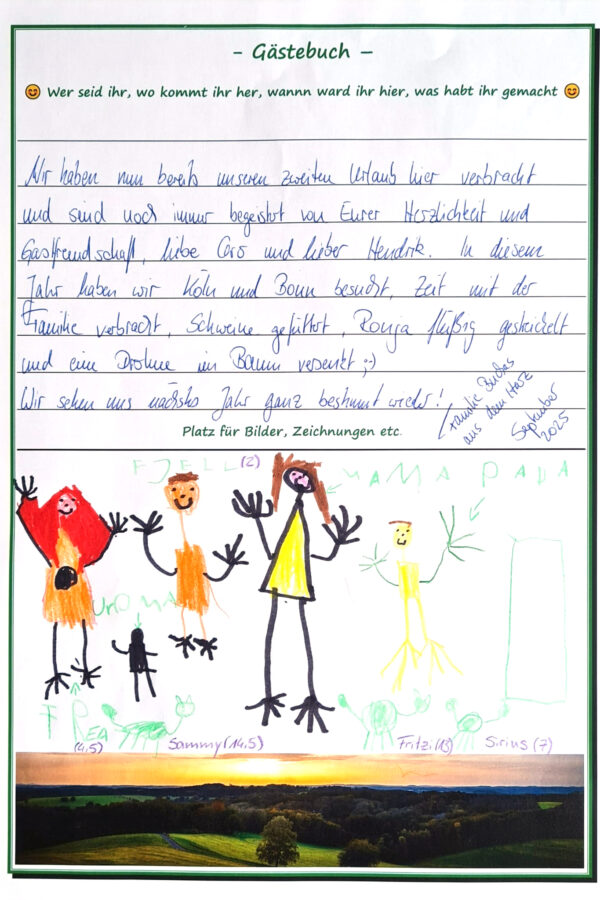 - Gästebuch –
Wer seid ihr, wo kommt ihr her, wannn ward ihr hier, was habt ihr gemacht
Wir haben nun bereits unseren zweiten Urlaub hier verbracht
und sind noch immer begeistert von Eurer Herzlichkeit und
Gastfreundschaft, liebe Caro und lieber Hendrik. In diesem
Jahr haben wir Köln und Bonn besucht, Zeit mit der
Familie verbracht, Schweine gefüttert, Ronja fleißig gestreichelt
und eine Drohne im Baum versenkt ;-)
Wir sehen uns nächstes Jahr ganz bestimmt wieder!
Familie
aus dem Harz
September
2025
Platz für Bilder, Zeichnungen etc.
FJELL (2)
MAMA PAPA
UROMA
FREA
(4,5)
Sammy (14,5)
Fritzi (13)
Sirius (7)